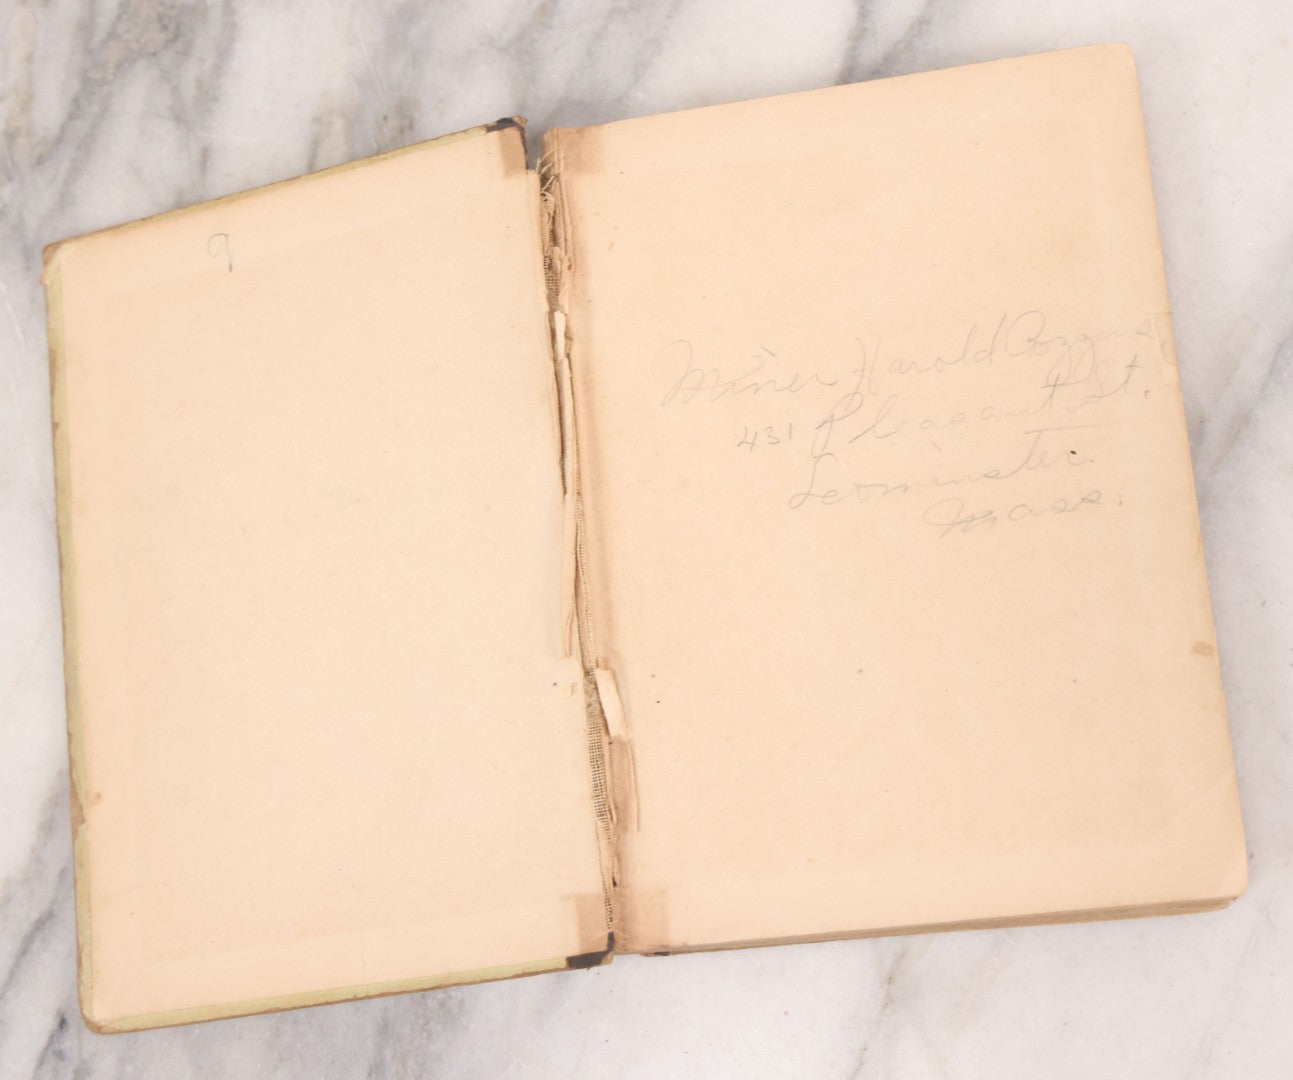 9
Miner Harold Cozzens
431 Pleasant St.
Leominster.
Mass.